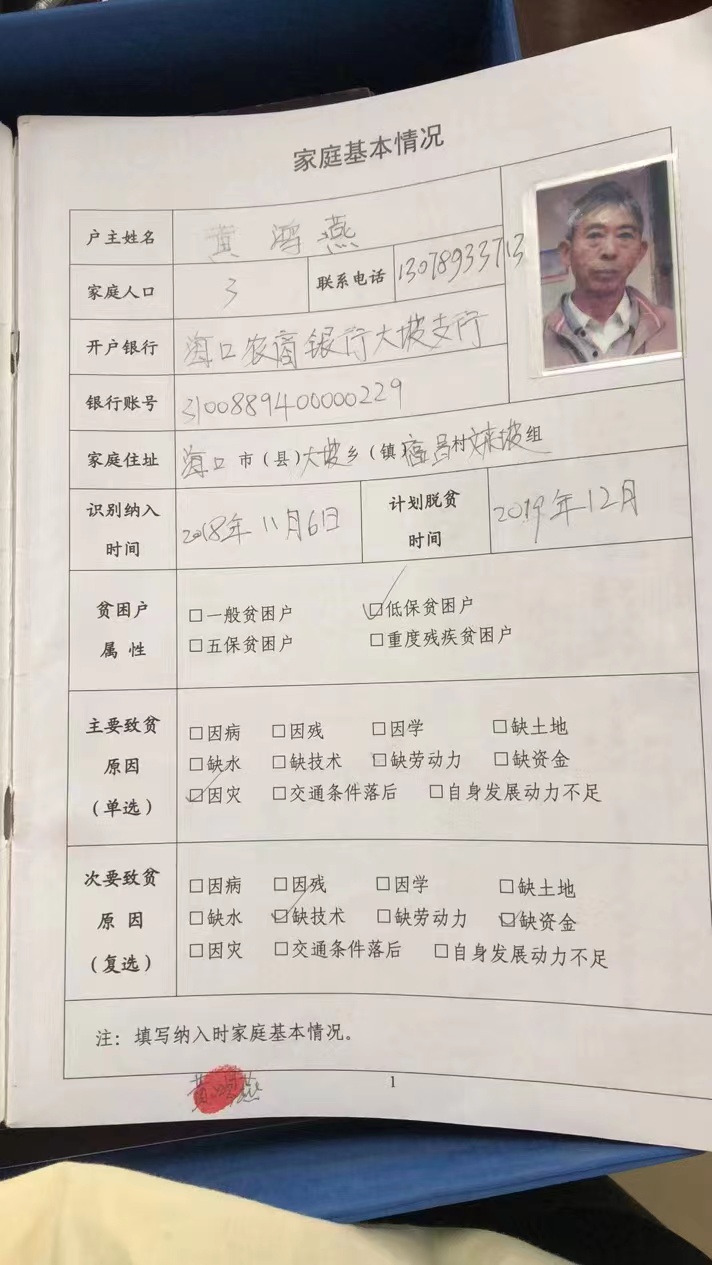 家庭基本情况
户主姓名 黄鸿燕
家庭人口 3 联系电话 13078933713
开户银行 海口农商银行大坡支行
银行账号 3100889400000229
家庭住址 海口市(县)大坡乡(镇 昌村 坡组
识别纳入时间 2018年11月6日 计划脱贫时间 2019年12月
贫困户属性 □一般贫困户 ☑低保贫困户
□五保贫困户 □重度残疾贫困户
主要致贫原因(单选) □因病 □因残 □因学 □缺土地
□缺水 □缺技术 □缺劳动力 □缺资金
☑因灾 □交通条件落后 □自身发展动力不足
次要致贫原因(复选) □因病 □因残 □因学 □缺土地
□缺水 ☑缺技术 □缺劳动力 ☑缺资金
□因灾 □交通条件落后 □自身发展动力不足
注：填写纳入时家庭基本情况。
黄鸿燕
1